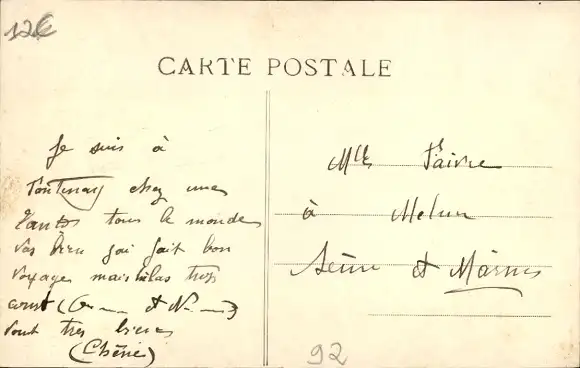 12€
CARTE POSTALE
Je suis à
Fontenay chez une
tantes tous le monde
vas bien j'ai fait bon
voyage mais hélas trop
court ( et
vont tres bien
(Chérie)
Mlle
à Melun
Seine et Marne
92